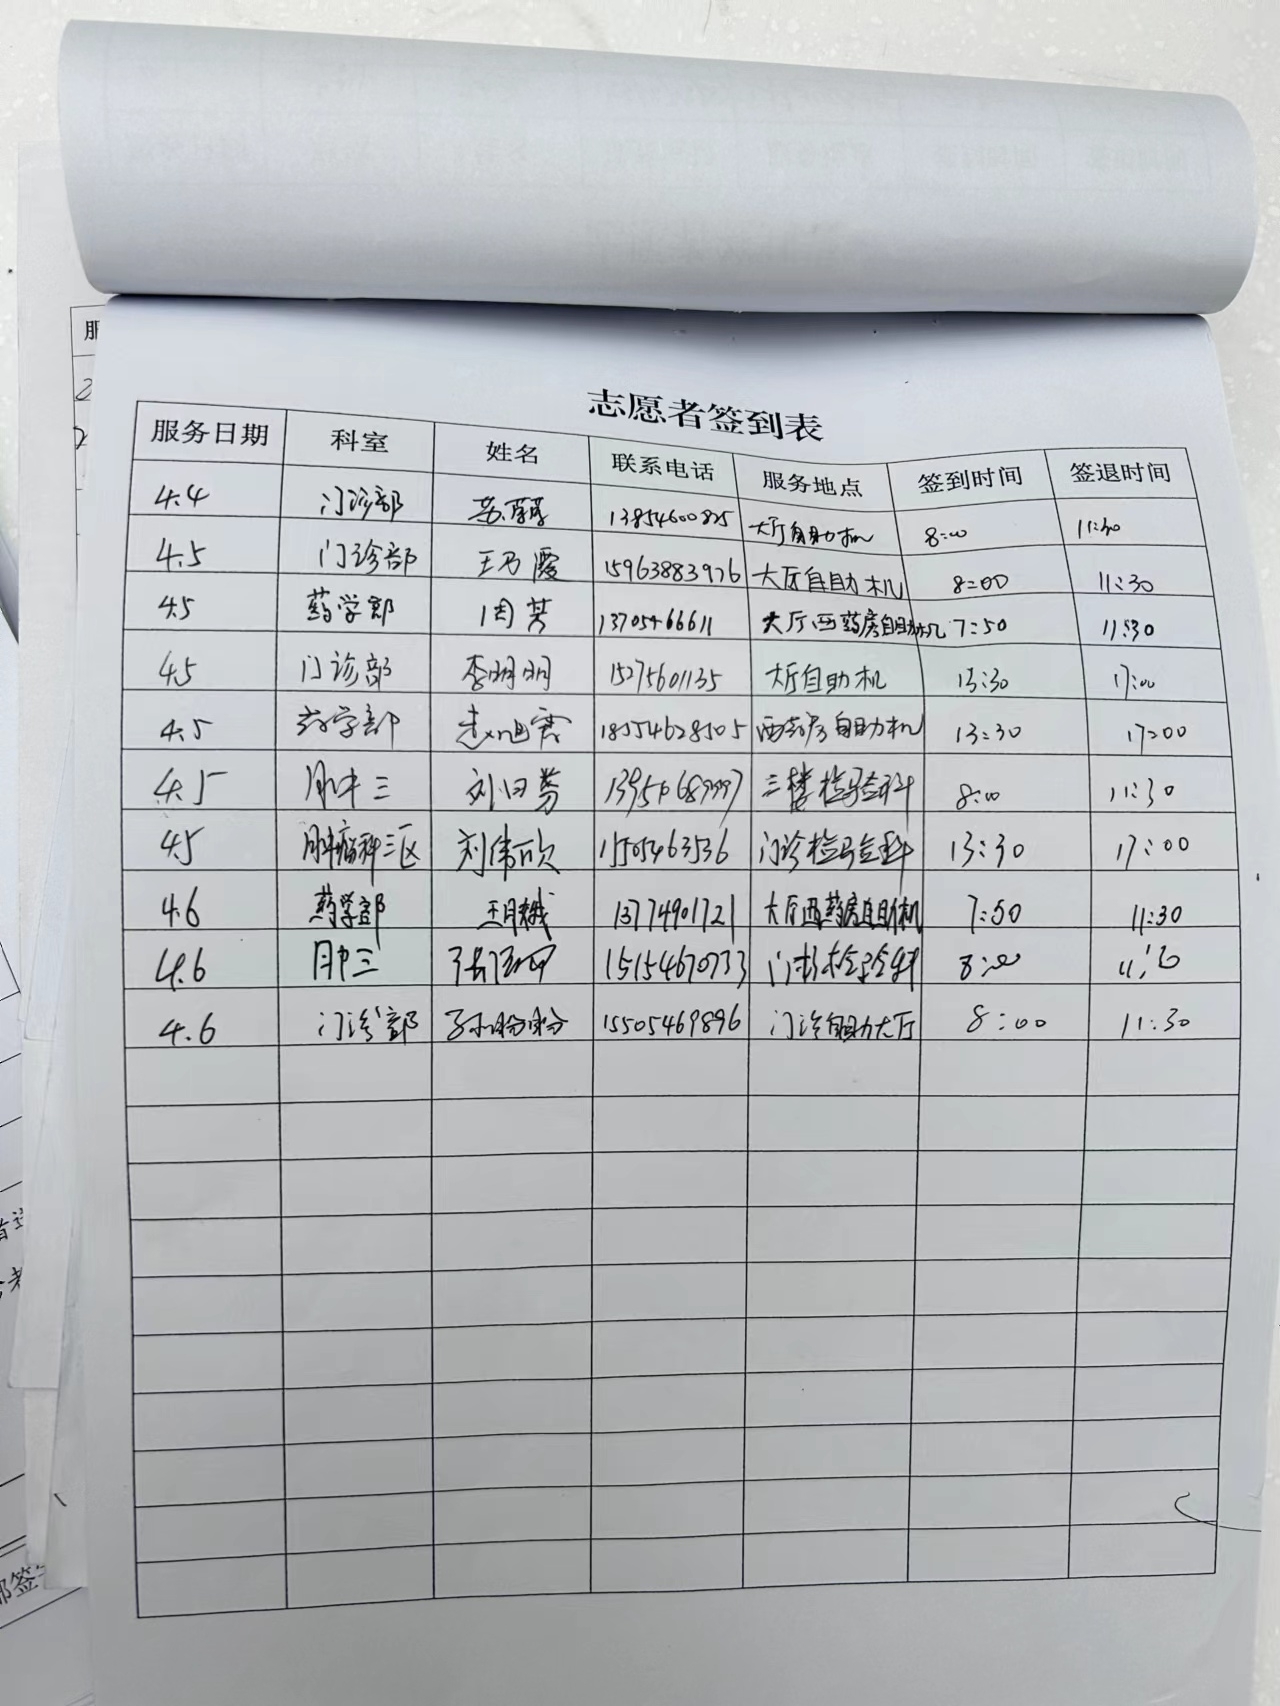 志愿者签到表
服务日期 科室 姓名 联系电话 服务地点 签到时间 签退时间
4.4 门诊部 13854600825 大厅自助机 8:00 11:30
4.5 门诊部 王乃霞 15963883976 大厅自助机 8:00 11:30
4.5 药学部 周芳 13705466611 大厅西药房自助机 7:50 11:30
4.5 门诊部 李明明 15275601135 大厅自助机 13:30 17:00
4.5 药学部 18554628505 西药房自助机 13:30 17:00
4.5 肿三 三楼检验科 8:00 11:30
4.5 肿瘤科三区 刘伟欣 15505463536 门诊检验科 13:30 17:00
4.6 药学部 13774901721 大厅西药房自助机 7:50 11:30
4.6 肿三 15154670733 门诊检验科 8:00
4.6 门诊部 孙盼盼 15505469896 门诊自助大厅 8:00 11:30